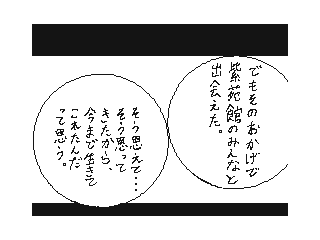 でもそのおかげで
紫苑館のみんなと
出会えた。
そう思えて・・・
そう思って
きたから、
今まで生きて
これたんだ
って思う。